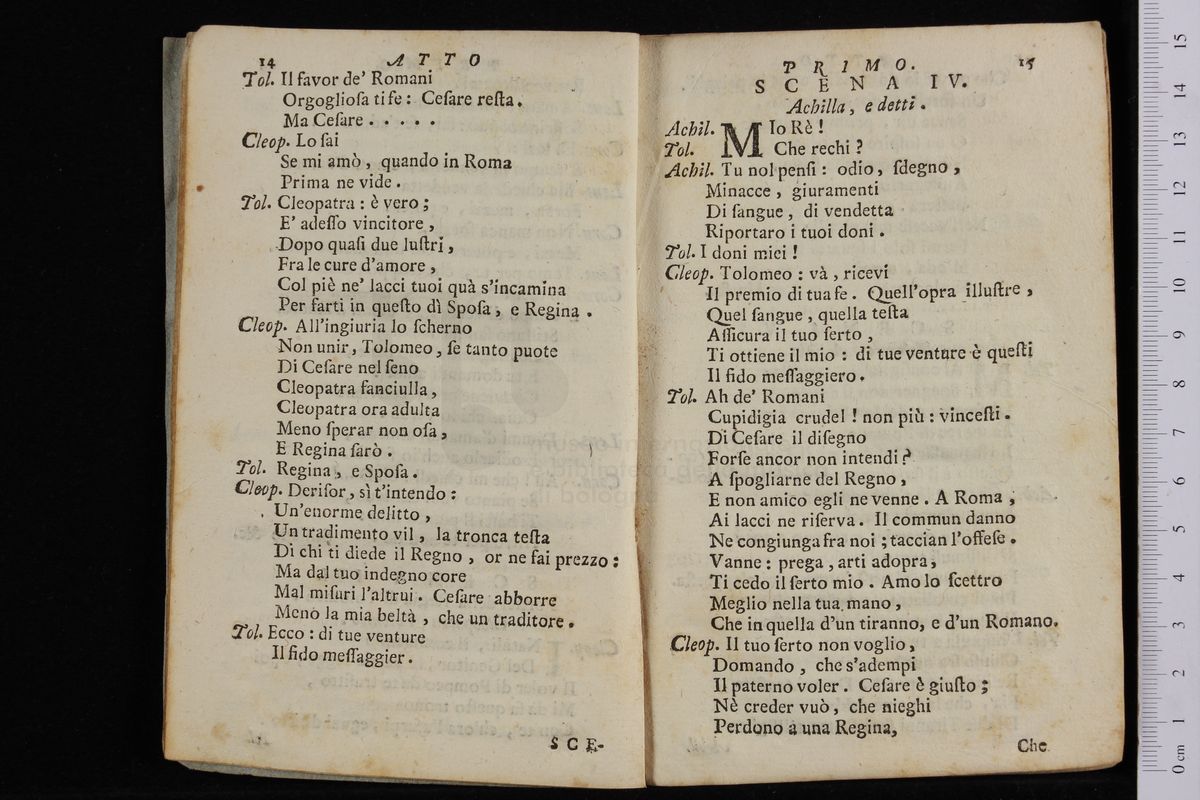 14 ATTO
Tol. Il favor de' Romani
Orgogliosa ti fe: Cesare resta.
Ma Cesare . . . . .
Cleop. Lo sai
Se mi amò, quando in Roma
Prima ne vide.
Tol. Cleopatra: è vero;
E' adesso vincitore,
Dopo quasi due lustri,
Fra le cure d'amore,
Col piè ne' lacci tuoi quà s'incamina
Per farti in questo dì Sposa, e Regina.
Cleop. All'ingiuria lo scherno
Non unir, Tolomeo, se tanto puote
Di Cesare nel seno
Cleopatra fanciulla,
Cleopatra ora adulta
Meno sperar non osa,
E Regina sarò.
Tol. Regina, e Sposa.
Cleop. Derisor, sì t'intendo:
Un'enorme delitto,
Un tradimento vil, la tronca testa
Di chi ti diede il Regno, or ne fai prezzo:
Ma dal tuo indegno core
Mal misuri l'altrui. Cesare abborre
Meno la mia beltà, che un traditore.
Tol. Ecco: di tue venture
Il fido messaggier.
SCE-
PRIMO. 15
SCENA IV.
Achilla, e detti.
Achil. MIo Rè!
Tol. Che rechi?
Achil. Tu nol pensi: odio, sdegno,
Minacce, giuramenti
Di sangue, di vendetta
Riportaro i tuoi doni.
Tol. I doni miei!
Cleop. Tolomeo: và, ricevi
Il premio di tua fe. Quell'opra illustre,
Quel sangue, quella testa
Assicura il tuo serto,
Ti ottiene il mio: di tue venture è questi
Il fido messaggiero.
Tol. Ah de' Romani
Cupidigia crudel! non più: vincesti.
Di Cesare il disegno
Forse ancor non intendi?
A spogliarne del Regno,
E non amico egli ne venne. A Roma,
Ai lacci ne riserva. Il commun danno
Ne congiunga fra noi; taccian l'offese.
Vanne: prega, arti adopra,
Ti cedo il serto mio. Amo lo scettro
Meglio nella tua mano,
Che in quella d'un tiranno, e d'un Romano.
Cleop. Il tuo serto non voglio,
Domando, che s'adempi
Il paterno voler. Cesare è giusto;
Nè creder vuò, che nieghi
Perdono a una Regina,
Che